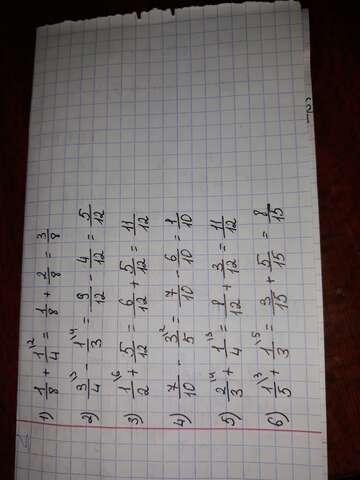 1) 1/8 + 1\2/4 = 1/8 + 2/8 = 3/8
2) 3\3/4 - 1\4/3 = 9/12 - 4/12 = 5/12
3) 1\6/2 + 5/12 = 6/12 + 5/12 = 11/12
4) 7/10 - 3\2/5 = 7/10 - 6/10 = 1/10
5) 2\4/3 + 1\3/4 = 8/12 + 3/12 = 11/12
6) 1\3/5 + 1\5/3 = 3/15 + 5/15 = 8/15